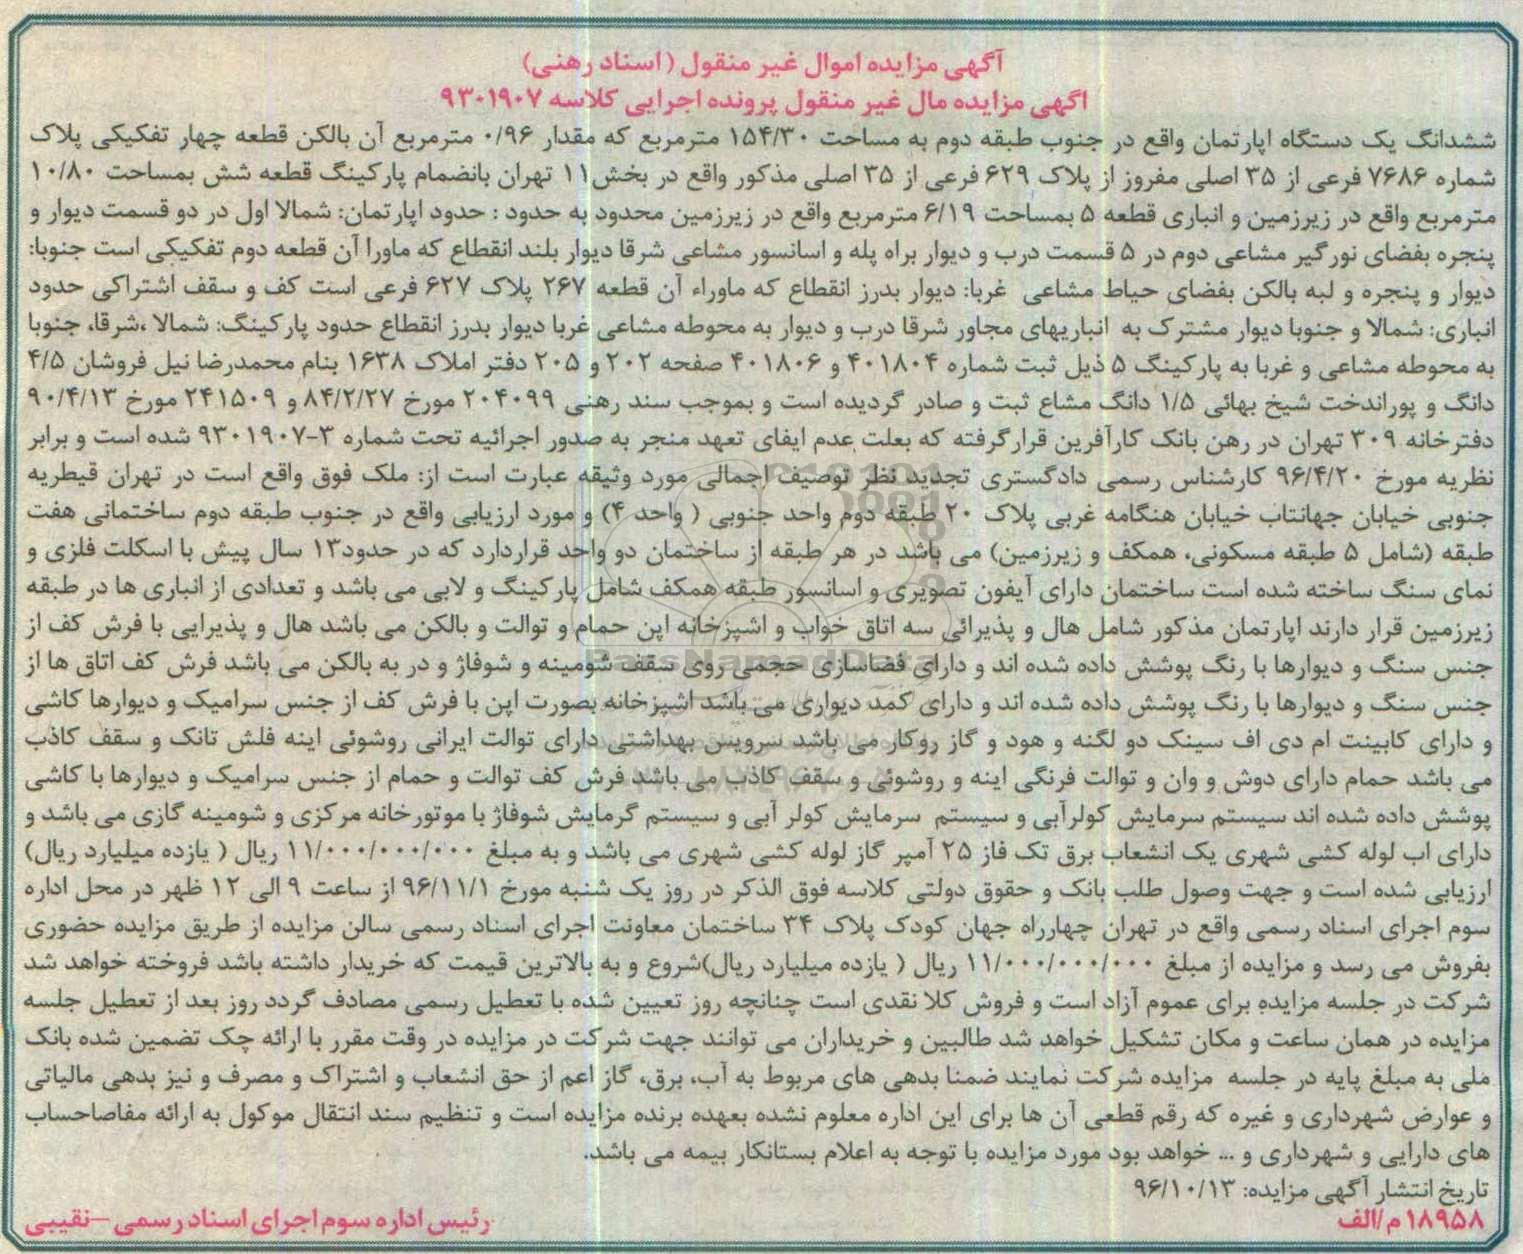 آگهی مزایده اموال غیر منقول (اسناد رهنی)
اگهی مزایده مال غیر منقول پرونده اجرایی کلاسه ۹۳۰۱۹۰۷
ششدانگ یک دستگاه اپارتمان واقع در جنوب طبقه دوم به مساحت ۱۵۴/۳۰ مترمربع که مقدار ۰/۹۶ مترمربع آن بالکن قطعه چهار تفکیکی پلاک
شماره ۷۶۸۶ فرعی از ۳۵ اصلی مفروز از پلاک ۶۲۹ فرعی از ۳۵ اصلی مذکور واقع در بخش۱۱ تهران بانضمام پارکینگ قطعه شش بمساحت ۱۰/۸۰
مترمربع واقع در زیرزمین و انباری قطعه ۵ بمساحت ۶/۱۹ مترمربع واقع در زیرزمین محدود به حدود : حدود اپارتمان: شمالا اول در دو قسمت دیوار و
پنجره بفضای نورگیر مشاعی دوم در ۵ قسمت درب و دیوار براه پله و اسانسور مشاعی شرقا دیوار بلند انقطاع که ماورا آن قطعه دوم تفکیکی است جنوبا:
دیوار و پنجره و لبه بالکن بفضای حیاط مشاعی غربا: دیوار بدرز انقطاع که ماوراء آن قطعه ۲۶۷ پلاک ۶۲۷ فرعی است کف و سقف اشتراکی حدود
انباری: شمالا و جنوبا دیوار مشترک به انباریهای مجاور شرقا درب و دیوار به محوطه مشاعی غربا دیوار بدرز انقطاع حدود پارکینگ: شمالا ،شرقا، جنوبا
به محوطه مشاعی و غربا به پارکینگ ۵ ذیل ثبت شماره ۴۰۱۸۰۴ و ۴۰۱۸۰۶ صفحه ۲۰۲ و ۲۰۵ دفتر املاک ۱۶۳۸ بنام محمدرضا نیل فروشان ۴/۵
دانگ و پوراندخت شیخ بهائی ۱/۵ دانگ مشاع ثبت و صادر گردیده است و بموجب سند رهنی ۲۰۴۰۹۹ مورخ ۸۴/۲/۲۷ و ۲۴۱۵۰۹ مورخ ۹۰/۴/۱۳
دفترخانه ۳۰۹ تهران در رهن بانک کارآفرین قرارگرفته که بعلت عدم ایفای تعهد منجر به صدور اجرائیه تحت شماره ۳-۹۳۰۱۹۰۷ شده است و برابر
نظریه مورخ ۹۶/۴/۲۰ کارشناس رسمی دادگستری تجدید نظر توصیف اجمالی مورد وثیقه عبارت است از: ملک فوق واقع است در تهران قیطریه
جنوبی خیابان جهانتاب خیابان هنگامه غربی پلاک ۲۰ طبقه دوم واحد جنوبی ( واحد ۴) و مورد ارزیابی واقع در جنوب طبقه دوم ساختمانی هفت
طبقه (شامل ۵ طبقه مسکونی، همکف و زیرزمین) می باشد در هر طبقه از ساختمان دو واحد قراردارد که در حدود۱۳ سال پیش با اسکلت فلزی و
نمای سنگ ساخته شده است ساختمان دارای آیفون تصویری و اسانسور طبقه همکف شامل پارکینگ و لابی می باشد و تعدادی از انباری ها در طبقه
زیرزمین قرار دارند اپارتمان مذکور شامل هال و پذیرائی سه اتاق خواب و اشپزخانه اپن حمام و توالت و بالکن می باشد هال و پذیرایی با فرش کف از
جنس سنگ و دیوارها با رنگ پوشش داده شده اند و دارای فضاسازی حجمی روی سقف شومینه و شوفاژ و در به بالکن می باشد فرش کف اتاق ها از
جنس سنگ و دیوارها با رنگ پوشش داده شده اند و دارای کمد دیواری می باشد اشپزخانه بصورت اپن با فرش کف از جنس سرامیک و دیوارها کاشی
و دارای کابینت ام دی اف سینک دو لگنه و هود و گاز روکار می باشد سرویس بهداشتی دارای توالت ایرانی روشوئی اینه فلش تانک و سقف کاذب
می باشد حمام دارای دوش و وان و توالت فرنگی اینه و روشوئی و سقف کاذب می باشد فرش کف توالت و حمام از جنس سرامیک و دیوارها با کاشی
پوشش داده شده اند سیستم سرمایش کولرآبی و سیستم سرمایش کولر آبی و سیستم گرمایش شوفاژ با موتورخانه مرکزی و شومینه گازی می باشد و
دارای اب لوله کشی شهری یک انشعاب برق تک فاز ۲۵ آمپر گاز لوله کشی شهری می باشد و به مبلغ ۱۱/۰۰۰/۰۰۰/۰۰۰ ریال ( یازده میلیارد ریال)
ارزیابی شده است و جهت وصول طلب بانک و حقوق دولتی کلاسه فوق الذکر در روز یک شنبه مورخ ۹۶/۱۱/۱ از ساعت ۹ الی ۱۲ ظهر در محل اداره
سوم اجرای اسناد رسمی واقع در تهران چهارراه جهان کودک پلاک ۳۴ ساختمان معاونت اجرای اسناد رسمی سالن مزایده از طریق مزایده حضوری
بفروش می رسد و مزایده از مبلغ ۱۱/۰۰۰/۰۰۰/۰۰۰ ریال ( یازده میلیارد ریال)شروع و به بالاترین قیمت که خریدار داشته باشد فروخته خواهد شد
شرکت در جلسه مزایده برای عموم آزاد است و فروش کلا نقدی است چنانچه روز تعیین شده با تعطیل رسمی مصادف گردد روز بعد از تعطیل جلسه
مزایده در همان ساعت و مکان تشکیل خواهد شد طالبین و خریداران می توانند جهت شرکت در مزایده در وقت مقرر با ارائه چک تضمین شده بانک
ملی به مبلغ پایه در جلسه مزایده شرکت نمایند ضمنا بدهی های مربوط به آب، برق، گاز اعم از حق انشعاب و اشتراک و مصرف و نیز بدهی مالیاتی
و عوارض شهرداری و غیره که رقم قطعی آن ها برای این اداره معلوم نشده بعهده برنده مزایده است و تنظیم سند انتقال موکول به ارائه مفاصاحساب
های دارایی و شهرداری و ... خواهد بود مورد مزایده با توجه به اعلام بستانکار بیمه می باشد.
تاریخ انتشار آگهی مزایده: ۹۶/۱۰/۱۳
۱۸۹۵۸م/الف
رئیس اداره سوم اجرای اسناد رسمی –نقیبی
ParsNamadData